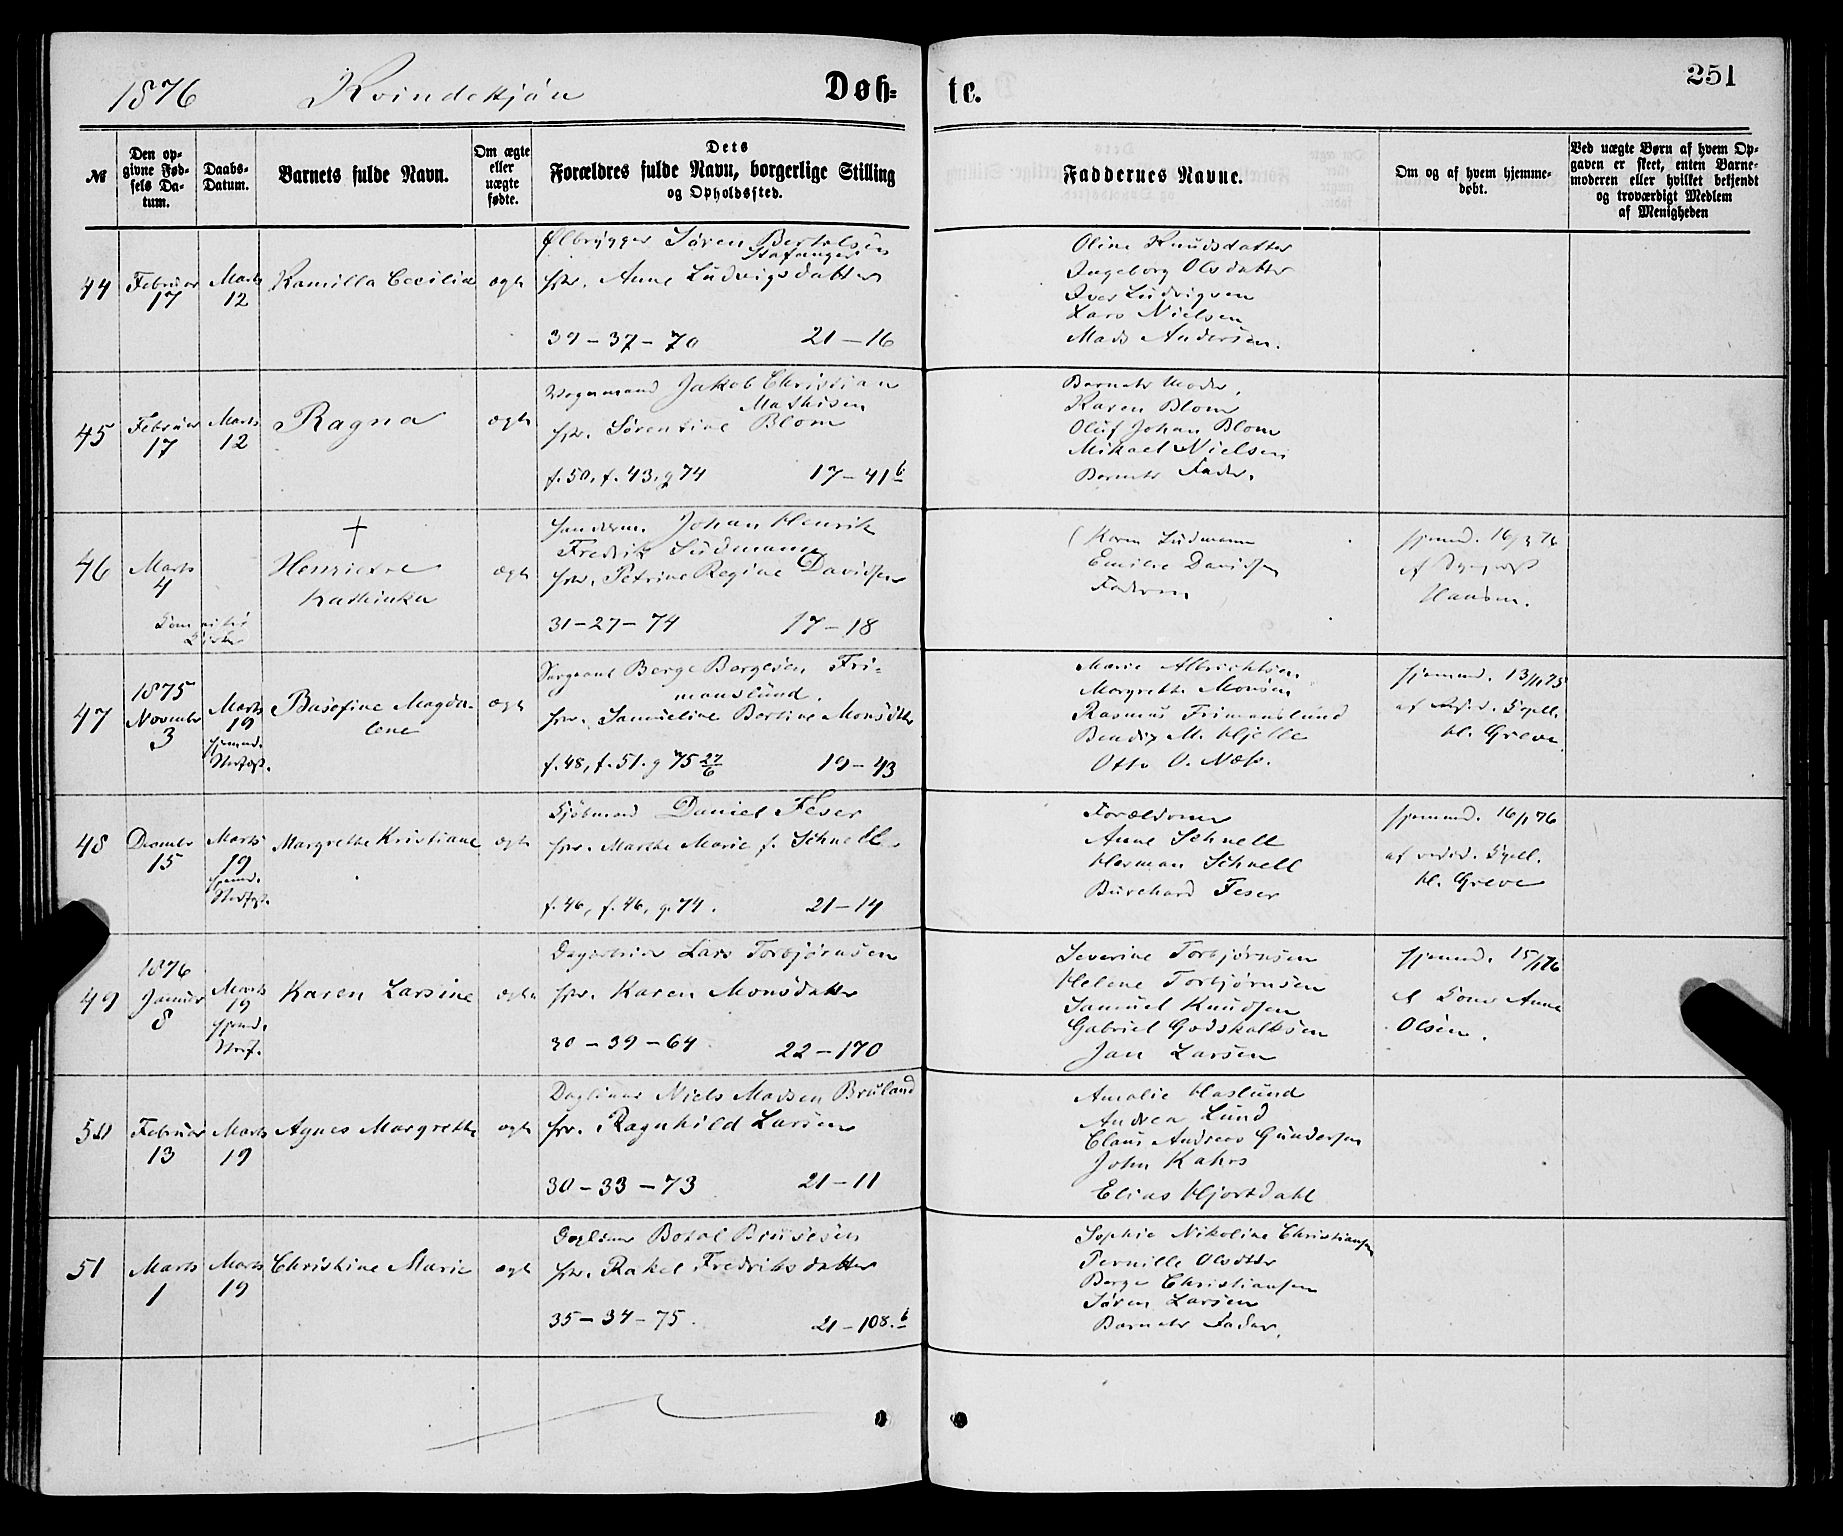 1876 Kvindekjøn Døb-
te. 251
№
Den op-
givne Fød-
sels Da-
tum.
Daabs-
Datum.
Barnets fulde Navn.
Om ægte
eller
uægte
fødte.
Dets
Forældres fulde Navn, borgerlige Stilling
og Opholdssted.
Faddernes Navne.
Om og af hvem hjemme-
døbt.
Ved uægte Børn af hvem Op-
gaven er skeet, enten Barne-
moderen eller hvilket bekjendt
og troværdigt Medlem
af Menigheden
44
Februar
17
Marts
12
Kamilla Cecilia
ægte
Ølbrygger Søren Bertelsen
Stafanger
Anne Ludvigsdatter
39 - 37 - 70 21 - 16
Oline Knudsdatter
Ingeborg Olsdatter
Iver Ludvigsen
Lars Nielsen
Mads Andersen.
45
Februar
17
Marts
12
Ragna
ægte
Vognmand Jakob Christian
Mathisen
Sørentine Blom
f. 50, f. 43, g 74 17 - 41 b
Barnets Moder,
Karen Blom
Oluf Johan Blom
Mikael Nielsen
Barnets Fader.
46
Marts
4
Henriette
Kathinka
ægte
Johan Henrik
Fredrik Südmann
Petrine Regine Davidsen
31 - 27 - 74 17 - 18
Karen Südmann
Emilie Davidsen
Faderen
hjemmed. 16/3 76
af
Hansen.
47
1875
November
3
Marts
19
hjemmed.
Stadfæst.
Basefine Magda-
lene
ægte
Sergeant Berge Børgesen Fri-
manslund
Samueline Bertine Monsdtr
f. 48, f. 51. g 75 27/6 19 - 43
Marie Albrichtsen
Margrethe Monsen
Rasmus Frimanslund
Bendix M. Hjelle
Otto O. Næss.
hjemmed. 13/11 75
af resid. Kapell.
H. Greve
48
Decembr
15
Marts
19
hjemmed.
Stadfæst.
Margrethe Kristiane
ægte
Kjøbmand Daniel Feser
Marthe Marie f. Schnell.
f. 46, f. 46, g. 74. 21 - 14
Forældrene
Anne Schnell
Herman Schnell
Burchard Feser
hjemmed. 16/1 76
af resid. Kapell.
H. Greve
49
1876
Januar
8
Marts
19
hjemmed.
Stadf.
Karen Larsine
ægte
Dagarbeider Lars Torbjørnsen
Karen Monsdatter
30 - 39 - 64 22 - 170
Severine Torbjørnsen
Helene Torbjørnsen
Samuel Knudsen
Gabriel Godskalksen
Jan Larsen
hjemmed. 15/1 76
af Kone Anne
Olsen.
50
Februar
13
Marts
19
Agnes Margrethe
ægte
Daglønner Niels Madsen Bruland
Ragnhild Larsen
30 - 33 - 73 21 - 11
Amalie Haslund
Andrea Lund
Claus Andreas Gundersen
John Kahrs
Elias Hjortdahl
51
Marts
1
Marts
19
Christine Marie
ægte
Daglønner Botol Brusesen
Rakel Fredriksdatter
35 - 34 - 75. 21 - 108. b
Sophie Nikoline Christiansen
Pernille Olsdtr
Berge Christiansen
Søren Larsen
Barnets Fader.